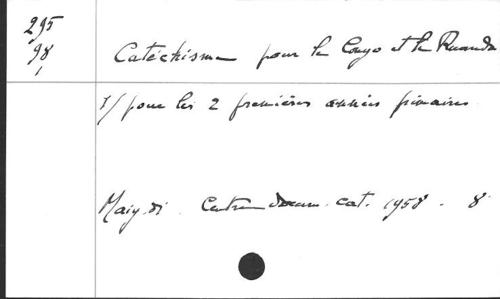 295
98
1
Catéchisme pour le Congo et le Ruanda
1/ pour les 2 premières années primaires
Centre docum. cat. 1958. 8°